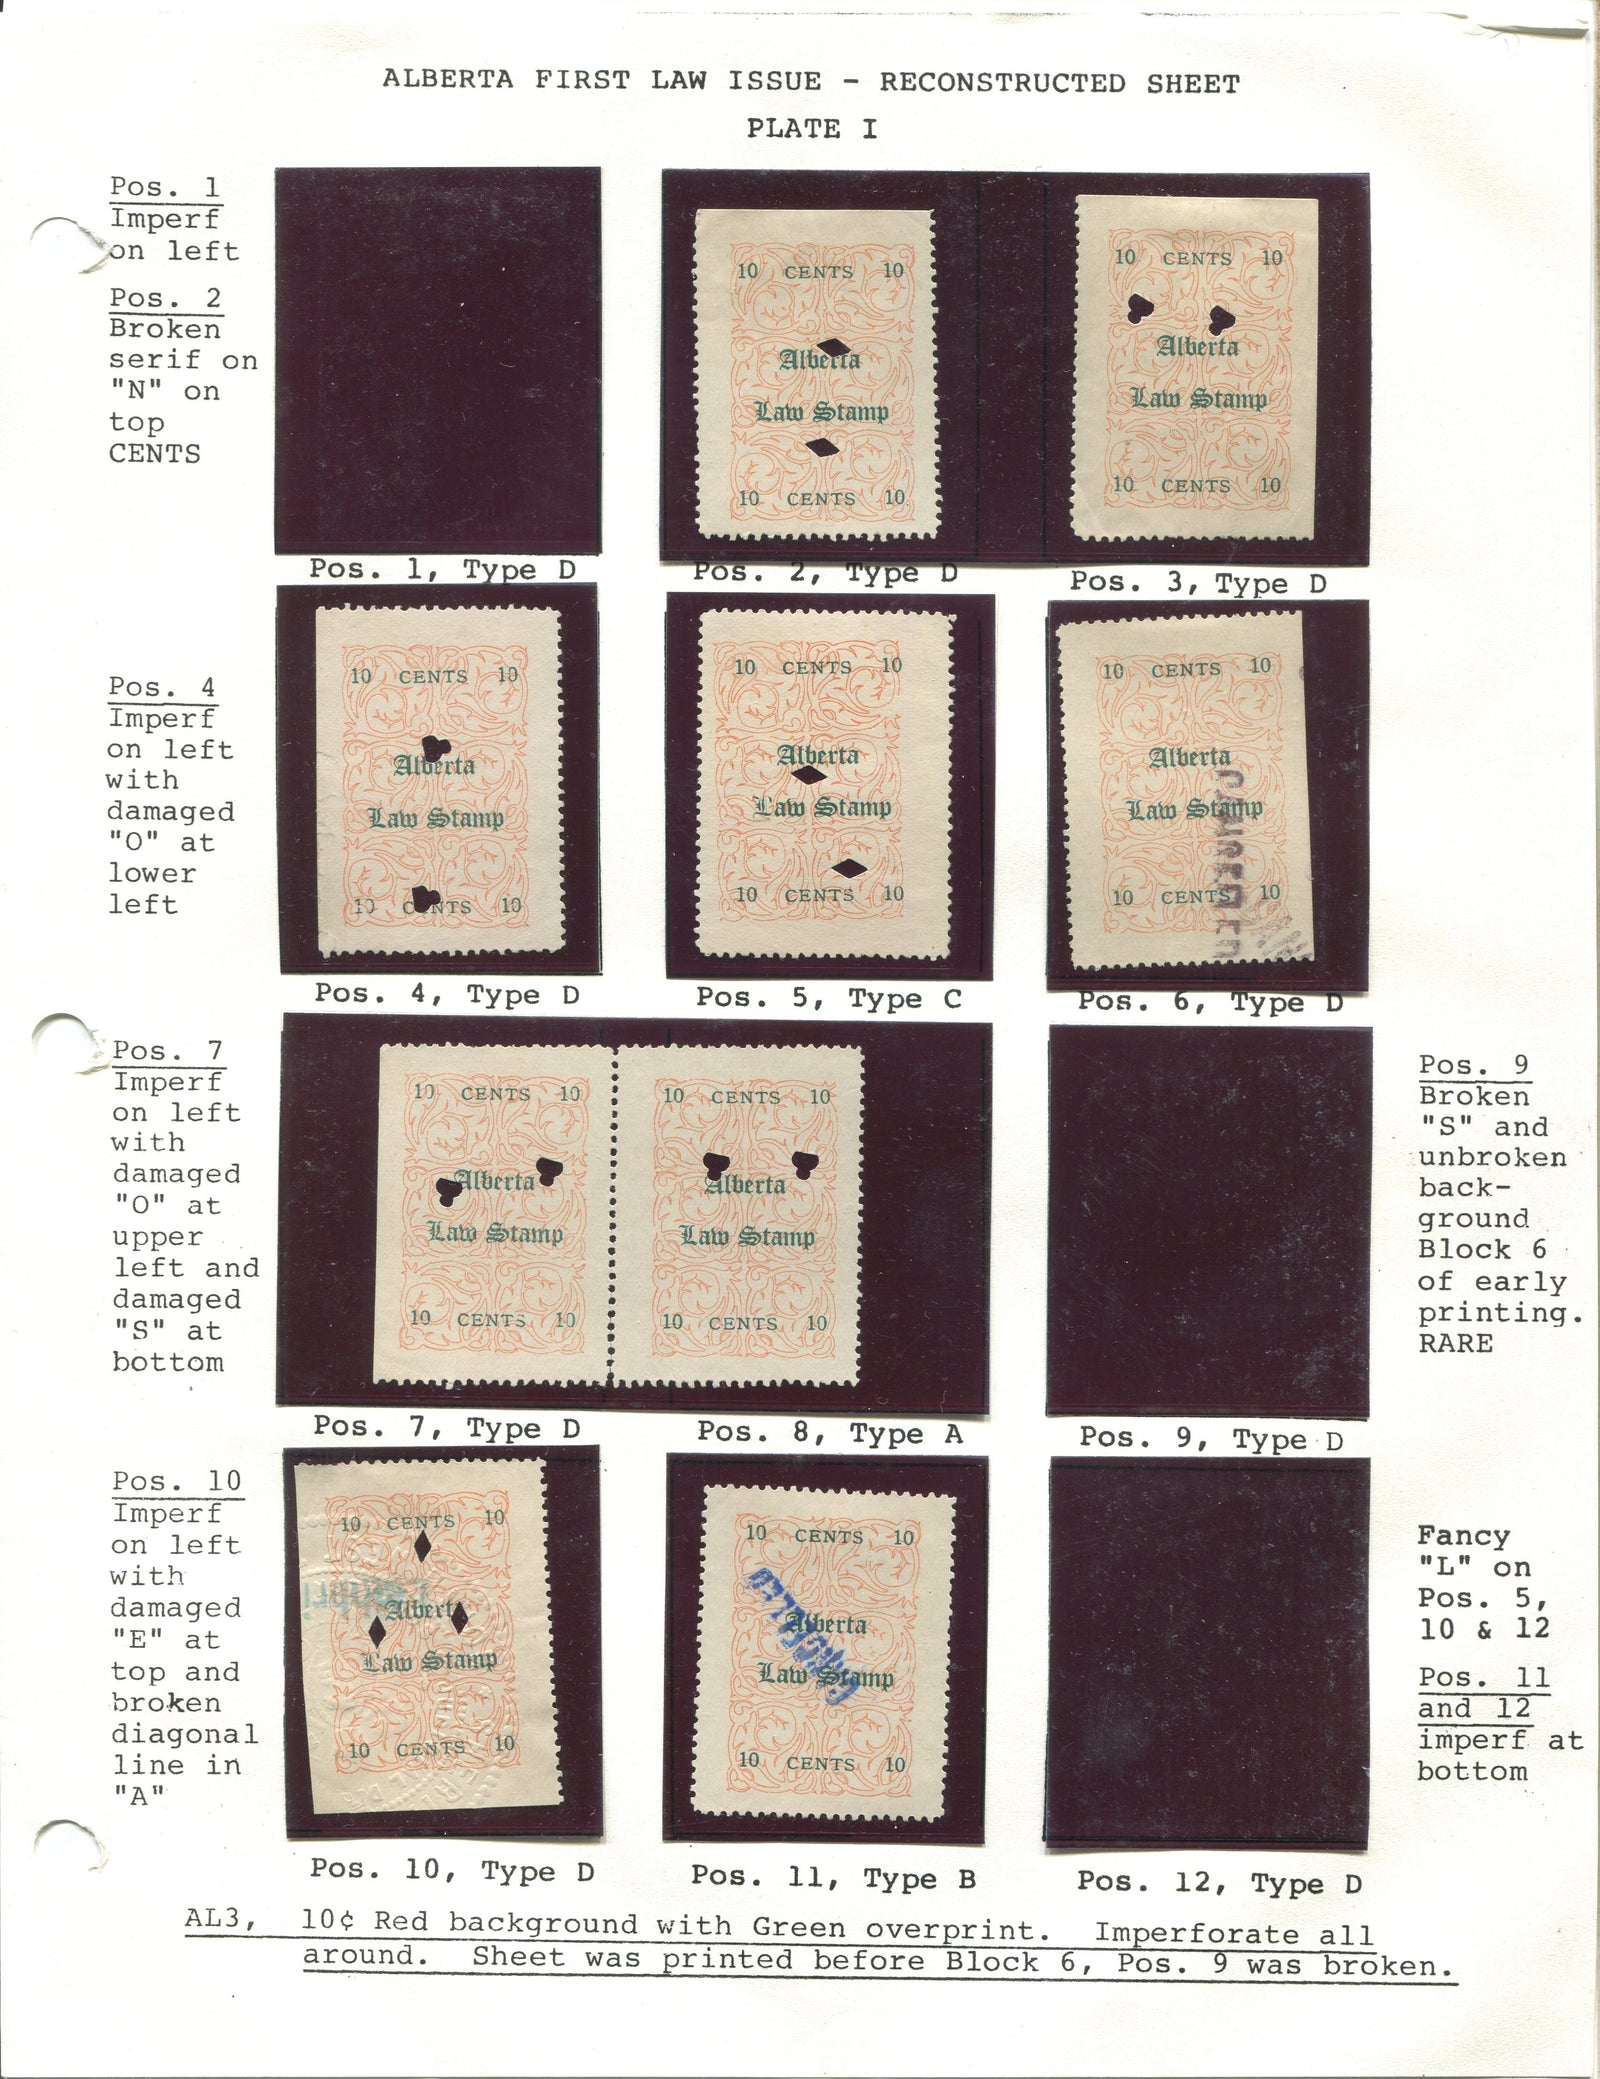 ALBERTA FIRST LAW ISSUE - RECONSTRUCTED SHEET
PLATE I
Pos. 1
Imperf
on left
Pos. 2
Broken
serif on
"N" on
top
CENTS
10 CENTS 10
Alberta
Law Stamp
10 CENTS 10
10 CENTS 10
Alberta
Law Stamp
10 CENTS 10
Pos. 1, Type D
Pos. 2, Type D
Pos. 3, Type D
Pos. 4
Imperf
on left
with
damaged
"O" at
lower
left
10 CENTS 10
Alberta
Law Stamp
10 CENTS 10
10 CENTS 10
Alberta
Law Stamp
10 CENTS 10
10 CENTS 10
Alberta
Law Stamp
10 CENTS 10
CANCELLED
Pos. 4, Type D
Pos. 5, Type C
Pos. 6, Type D
Pos. 7
Imperf
on left
with
damaged
"O" at
upper
left and
damaged
"S" at
bottom
10 CENTS 10
Alberta
Law Stamp
10 CENTS 10
10 CENTS 10
Alberta
Law Stamp
10 CENTS 10
Pos. 9
Broken
"S" and
unbroken
back-
ground
Block 6
of early
printing.
RARE
Pos. 7, Type D
Pos. 8, Type A
Pos. 9, Type D
Pos. 10
Imperf
on left
with
damaged
"E" at
top and
broken
diagonal
line in
"A"
10 CENTS 10
Alberta
Law Stamp
10 CENTS 10
10 CENTS 10
Alberta
Law Stamp
10 CENTS 10
CANCELLED
Fancy
"L" on
Pos. 5,
10 & 12
Pos. 11
and 12
imperf at
bottom
Pos. 10, Type D
Pos. 11, Type B
Pos. 12, Type D
AL3, 10¢ Red background with Green overprint. Imperforate all
around. Sheet was printed before Block 6, Pos. 9 was broken.